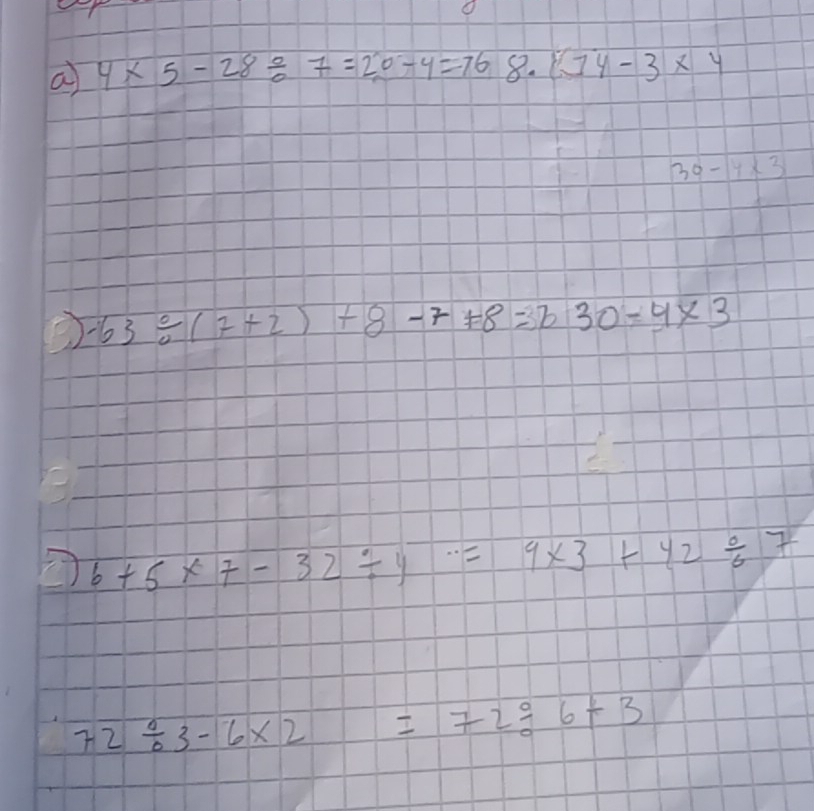 a) 4 × 5 - 28 ÷ 7 = 20 - 4 = 16 8. 14 - 3 × 4
30 - 4 × 3
-63 ÷ ( 7 + 2 ) + 8 - 7 + 8 = 30 - 4 × 3
c) 6 + 5 × 7 - 32 ÷ 4 = 9 × 3 + 42 ÷ 7
72 ÷ 3 - 6 × 2 = 72 ÷ 6 + 3